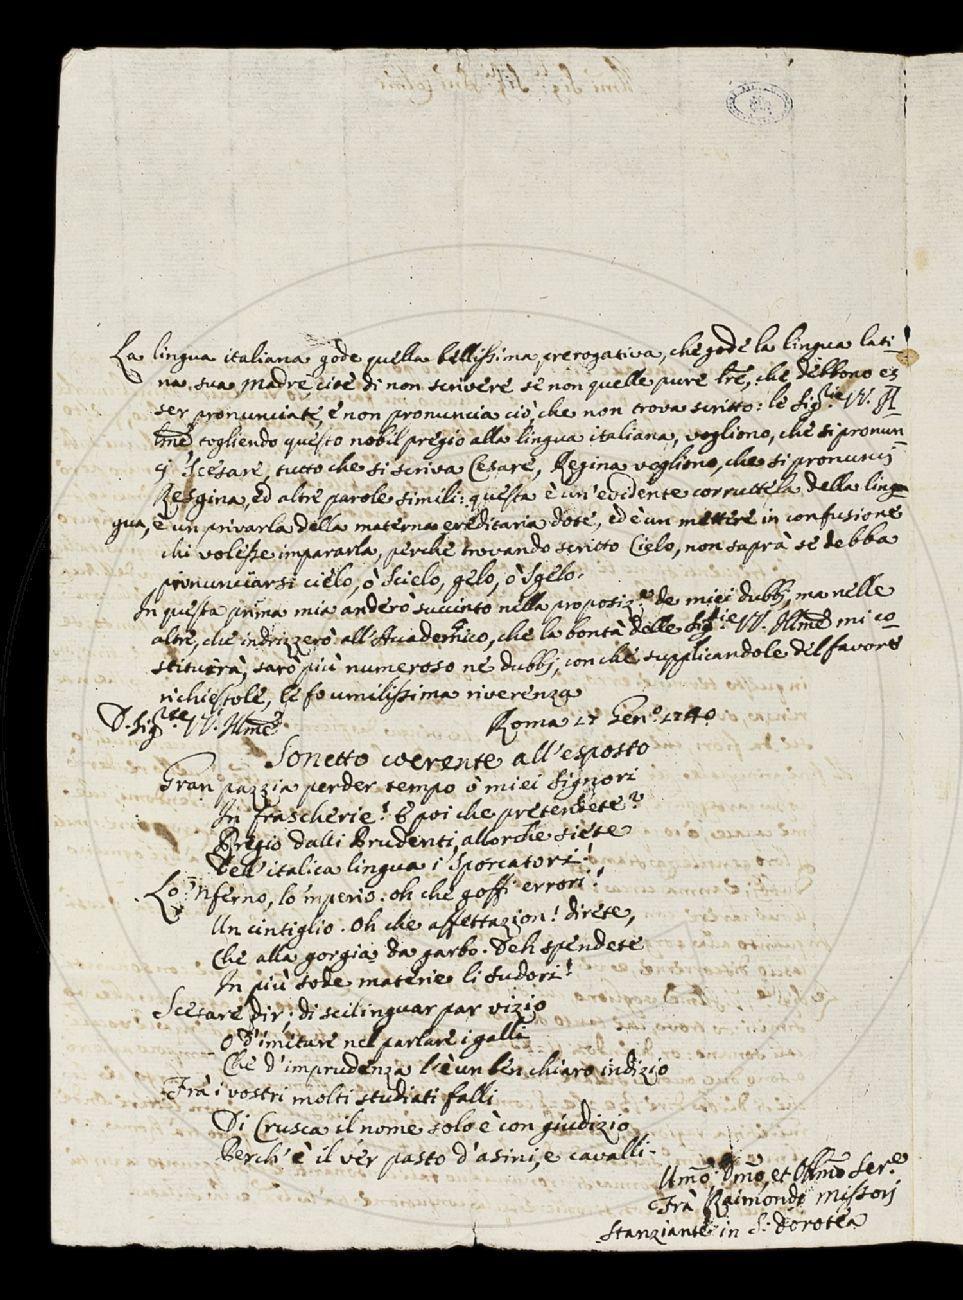 La lingua italiana gode quella bellissima prerogativa, che gode la lingua lati-
na sua Madre, cioè di non scrivere se non quelle pure lrē, che debbono es
ser pronunciate, e non pronuncia ciò, che non trova scritto: le Sig.rie VV. Il
lmē togliendo questo nobil pregio alla lingua italiana, vogliono, che si pronun-
cj Scesare, tutto che si scriva Cesare, Regina vogliono, che si pronuncj
Resgina, ed altre parole simili: questa è un'evidente corruttela della lin
gua, è un privarla della materna ereditaria dote, ed è un mettere in confusione
chi volesse impararla, perche trovando scritto Cielo, non saprà se debba
pronunciarsi cielo, ò scielo, gelo, ò sgelo.
In questa prima mia anderò succinto nella proposiz.e de miei dubbj, ma nelle
altre, che indrizzerò all'Accademico, che la bontà delle Sig.rie VV. Illmē mi co-
stituirà, sarò più numeroso ne dubbj, con che supplicandole del favore
richiestole, le fo umilissima riverenza
D. Sig.rie VV. Illmē
Roma 15 Gen.o 1740
Sonetto coerente all'esposto
Gran pazzia perder tempo ò miei Signori
In frascherie! E poi che pretendete?
Pregio dalli Prudenti, allorche siete
Dell'italica lingua i Sporcatori!
Lo 'nferno, lo 'mperio: oh che goffi errori!
Un cintiglio. Oh che affettazion! direte,
Che alla gorgia da garbo. Deh spendete
In più sode materie li sudori!
Scesare dir; di scilinguar par vizio
O d'imitare nel parlare i galli
Che d'imprudenza l'è un ben chiaro indizio
Frà i vostri molti studiati falli
Di Crusca il nome solo è con giudizio
Perch' è il ver pasto d'asini, e cavalli.
Umō, Dmō, et Obmō Ser.e
Frà Raimondo Missorj
Stanziante in S. Dorotea